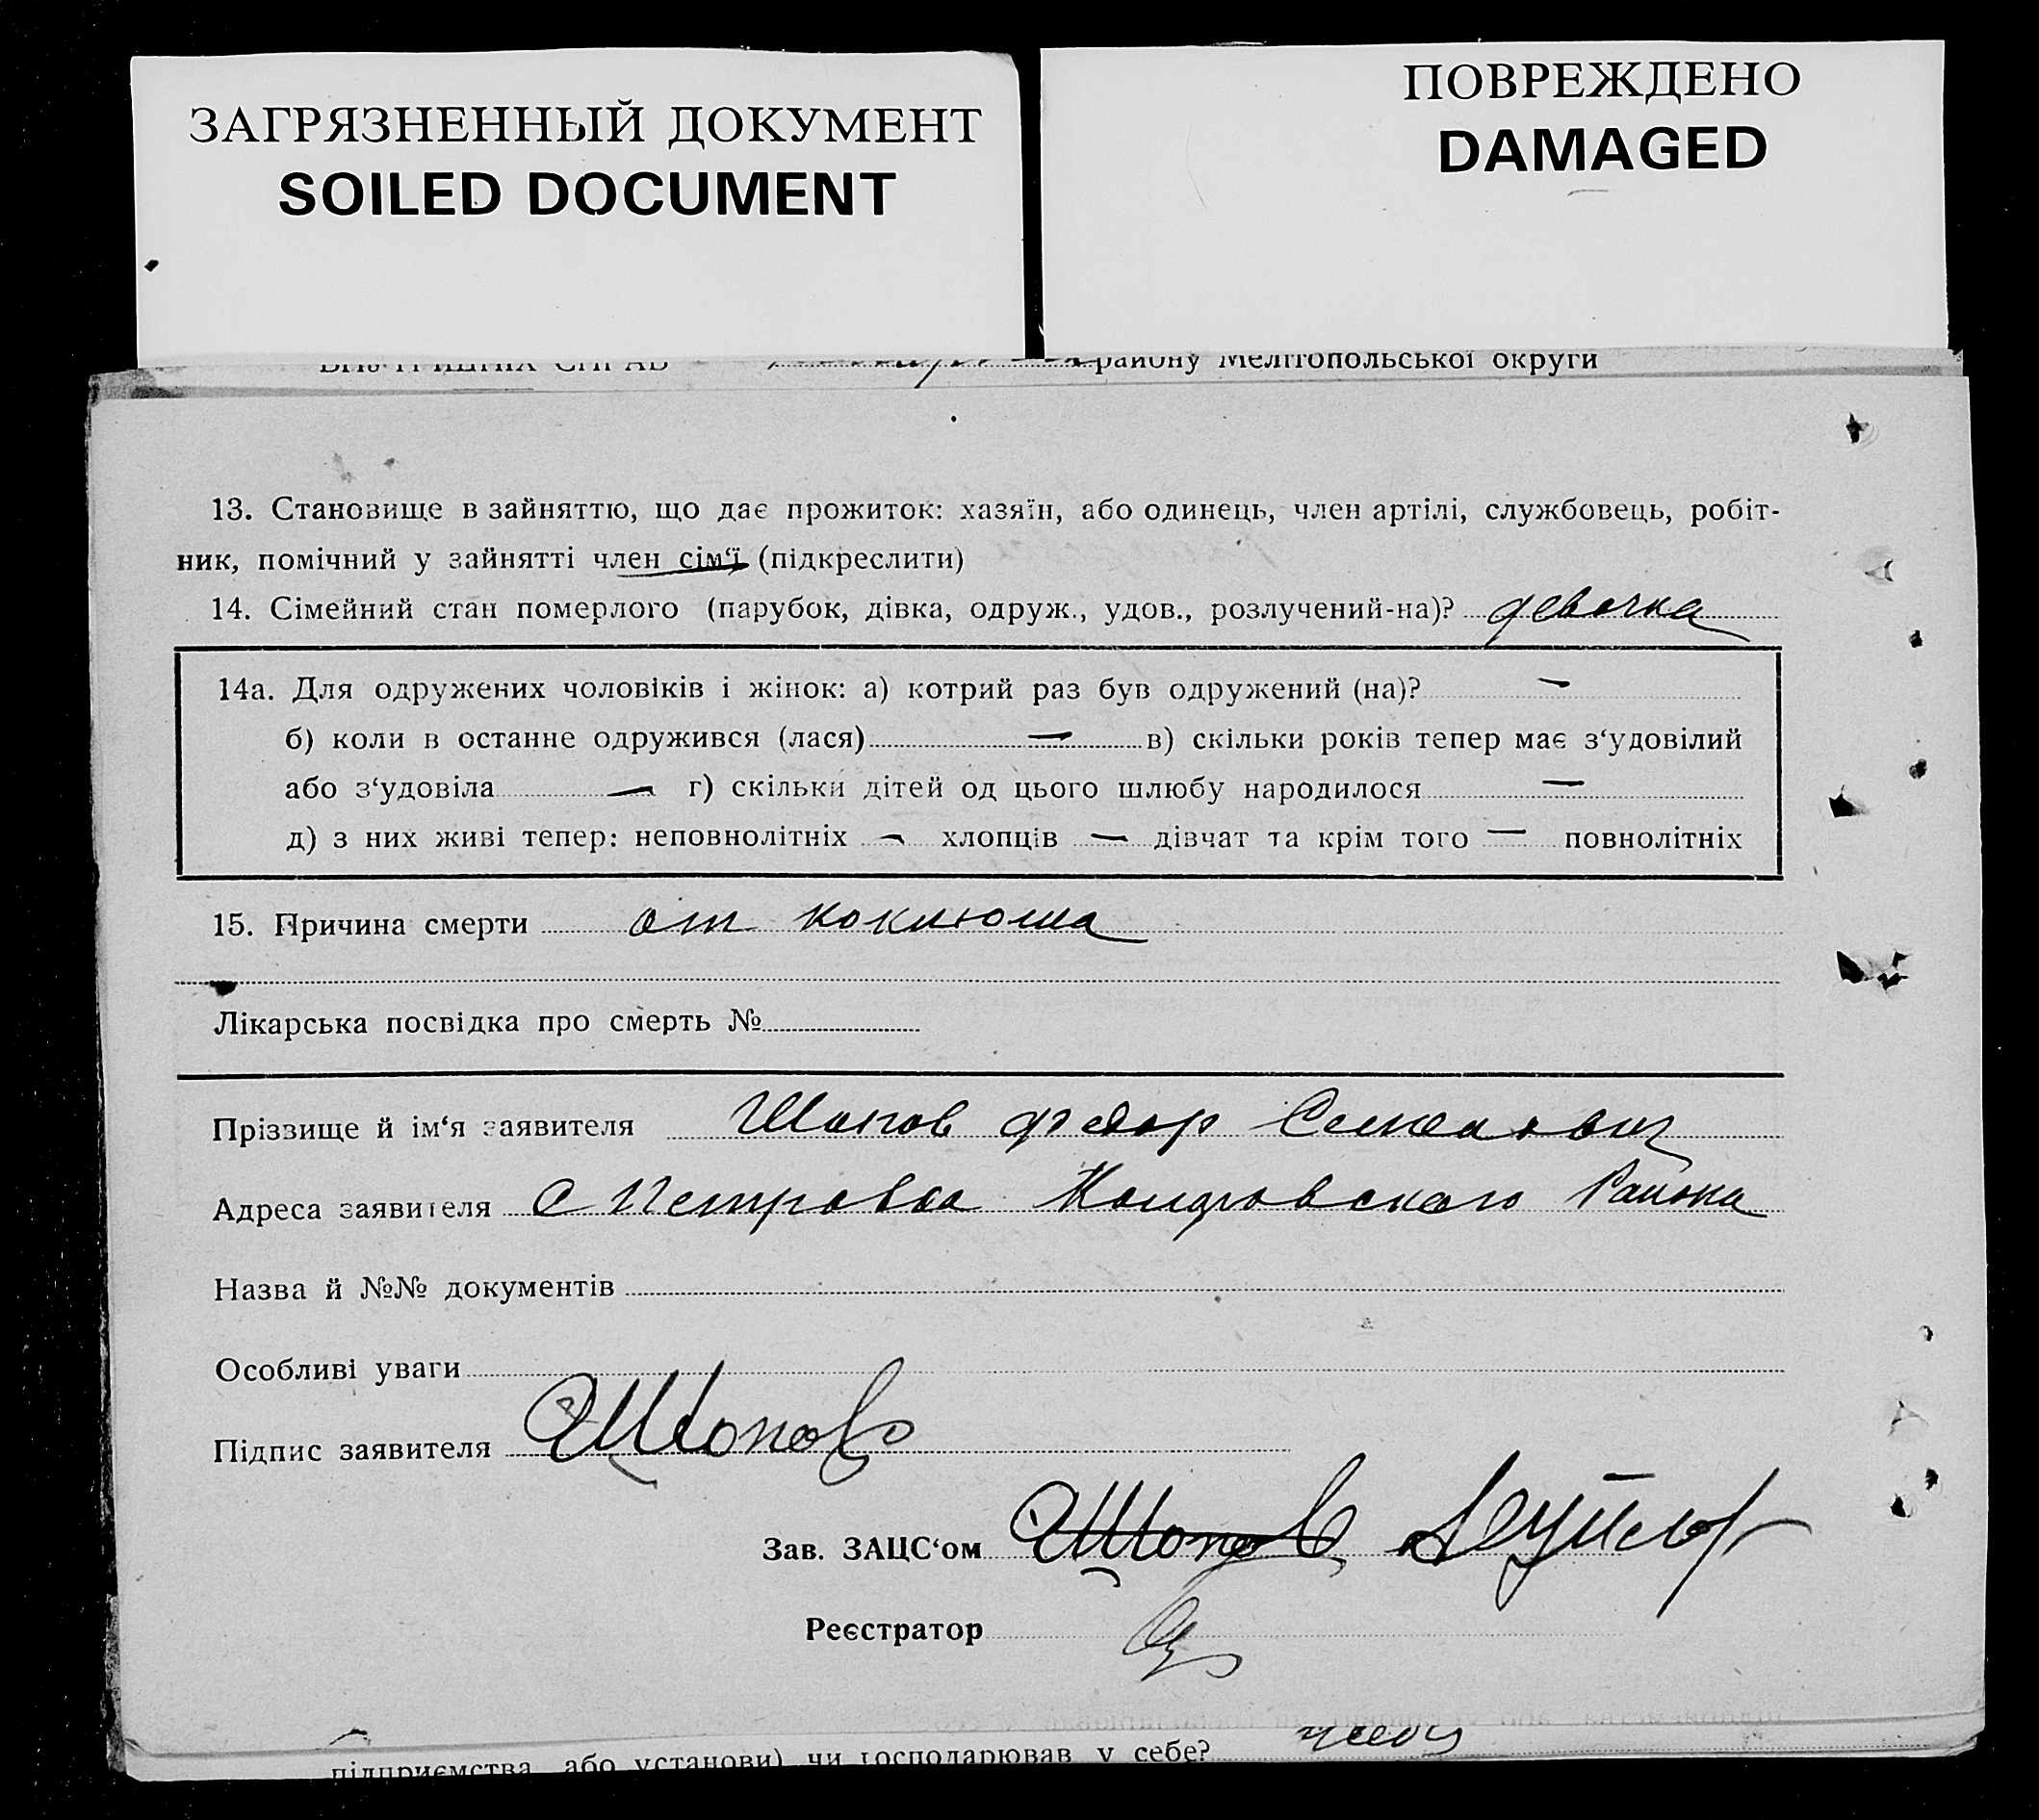 ЗАГРЯЗНЕННЫЙ ДОКУМЕНТ
SOILED DOCUMENT
ПОВРЕЖДЕНО
DAMAGED
району Мелітопольської округи
13. Становище в зайняттю, що дає прожиток: хазяїн, або одинець, член артілі, службовець, робіт-
ник, помічний у зайнятті член сім‘ї (підкреслити)
14. Сімейний стан померлого (парубок, дівка, одруж., удов., розлучений-на)? девочка
14а. Для одружених чоловіків і жінок: а) котрий раз був одружений (на)? —
б) коли в останне одружився (лася) — в) скільки років тепер має з‘удовілий
або з‘удовіла — г) скільки дітей од цього шлюбу народилося —
д) з них живі тепер: неповнолітніх — хлопців — дівчат та крім того — повнолітніх
15. Причина смерти от коклюша
Лікарська посвідка про смерть №
Прізвище й ім‘я заявителя Шопов Федор
Адреса заявителя С Петровка Района
Назва й №№ документів
Особливі уваги
Підпис заявителя Шопов
Зав. ЗАЦС‘ом Шопов
Реєстратор
підприємства або установи) чи господарював у себе?